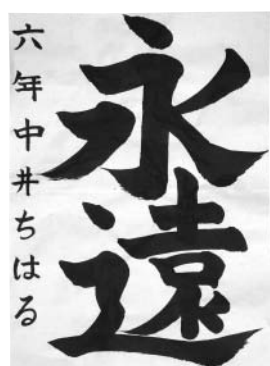 永遠
六年中井ちはる